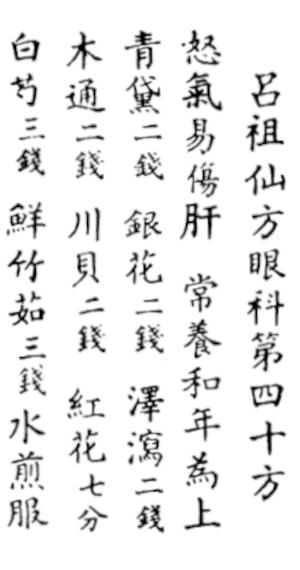 呂祖仙方眼科第四十方
怒氣易傷肝 常養和年為上
青黛二錢 銀花二錢 澤瀉二錢
木通二錢 川貝二錢 紅花七分
白芍三錢 鮮竹茹三錢水煎服